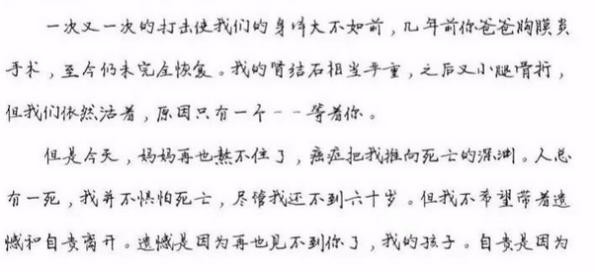 一次又一次的打击使我们的身体大不如前，几年前你爸爸胸膜炎
手术，至今仍未完全恢复。我的肾结石相当严重，之后又小腿骨折，
但我们依然活着，原因只有一个--等着你。
但是今天，妈妈再也熬不住了，癌症把我推向死亡的深渊。人总
有一死，我并不惧怕死亡，尽管我还不到六十岁。但我不希望带着遗
憾和自责离开。遗憾是因为再也见不到你了，我的孩子。自责是因为